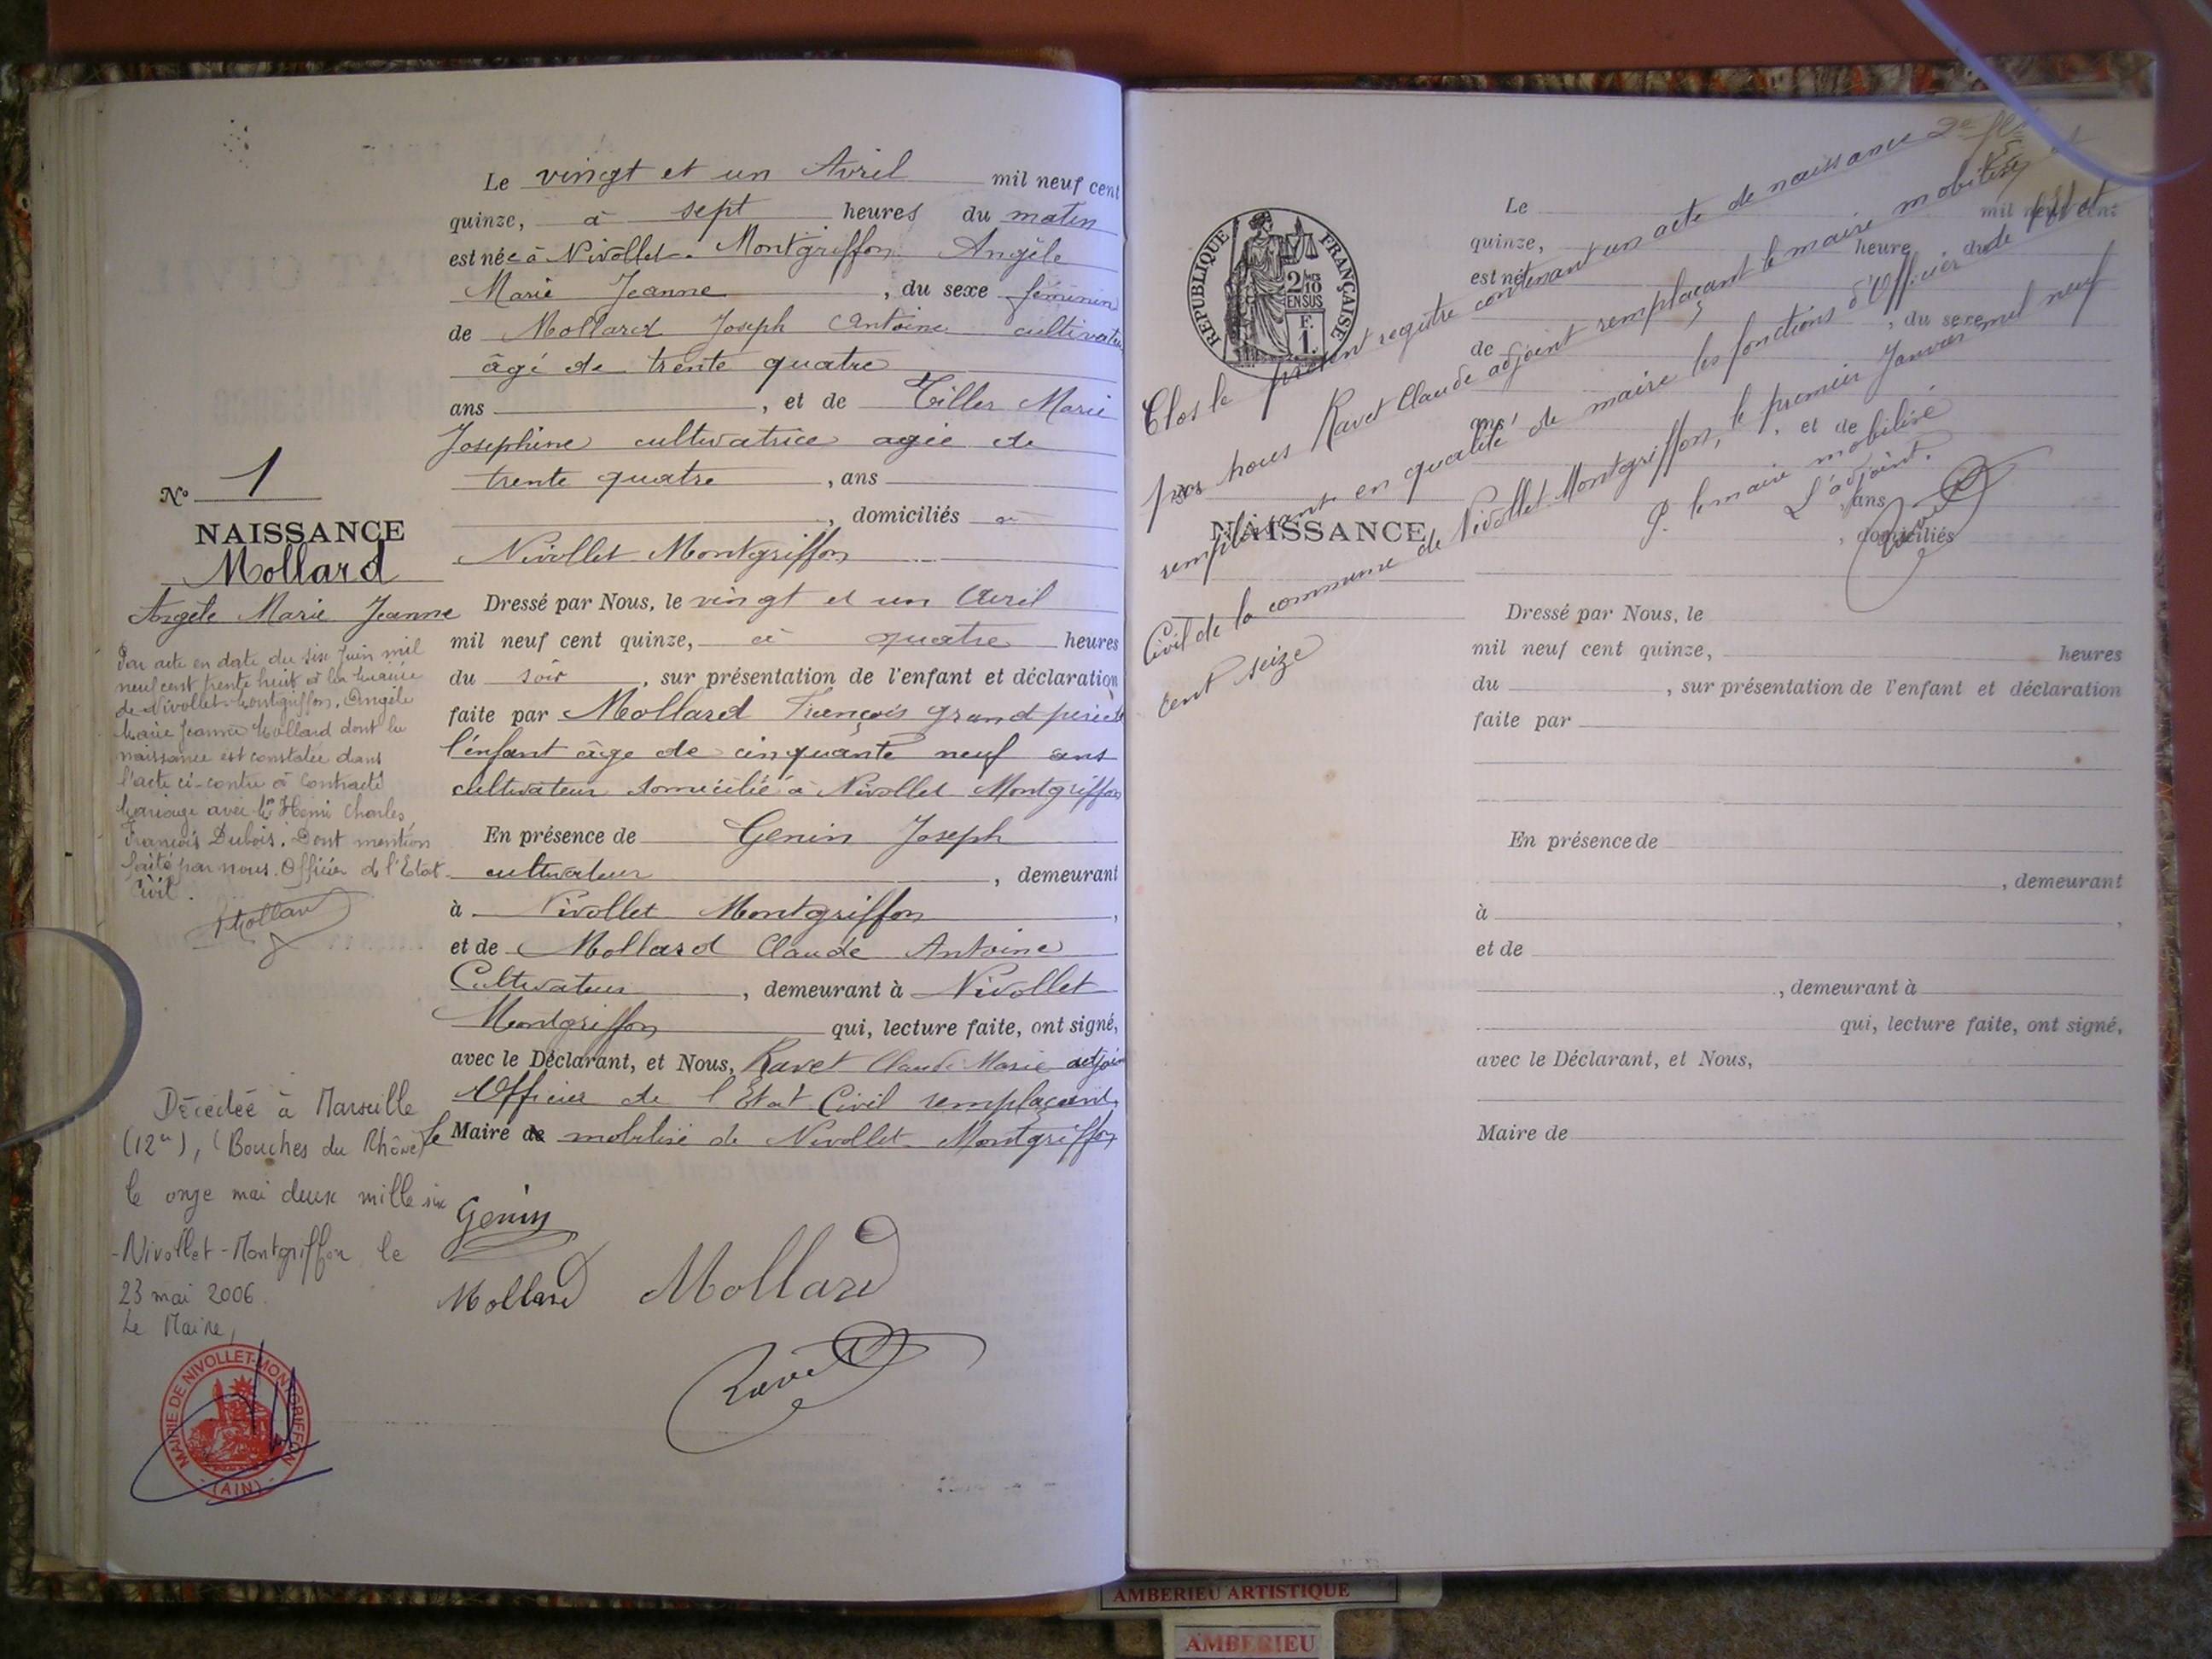 N° 1
NAISSANCE
Mollard
Angèle Marie Jeanne
Par acte en date du six Juin mil
neuf cent trente huit à la mairie
de Nivollet-Montgriffon, Angèle
Marie Jeanne Mollard dont la
naissance est constatée dans
l'acte ci-contre à contracté
mariage avec Mr Henri Charles,
François Dubois. Dont mention
faite par nous. Officier de l'Etat
Civil.
Mollard
Décédée à Marseille
(12e), (Bouches du Rhône)
le onze mai deux mille six
Nivollet-Montgriffon le
23 mai 2006.
Le Maire,
MAIRIE DE NIVOLLET-MONTGRIFFON
(AIN)
Le vingt et un Avril mil neuf cent
quinze, à sept heures du matin
est née à Nivollet-Montgriffon Angèle
Marie Jeanne, du sexe féminin
de Mollard Joseph Antoine cultivateur
âgé de trente quatre
ans, et de Tiller Marie
Joséphine cultivatrice agée de
trente quatre, ans
, domiciliés à
Nivollet Montgriffon
Dressé par Nous, le vingt et un Avril
mil neuf cent quinze, à quatre heures
du soir, sur présentation de l'enfant et déclaration
faite par Mollard François grand père de
l'enfant âge de cinquante neuf ans
cultivateur domicilié à Nivollet Montgriffon
En présence de Genin Joseph
cultivateur, demeurant
à Nivollet Montgriffon,
et de Mollard Claude Antoine
Cultivateur, demeurant à Nivollet
Montgriffon qui, lecture faite, ont signé,
avec le Déclarant, et Nous, Ravet Claude Marie adjoint
Officier de l'Etat Civil remplaçant
le Maire de mobilisé de Nivollet Montgriffon
Genin
Mollard Mollard
Ravet
REPUBLIQUE FRANÇAISE
2/10
EN SUS
F.
1.
Clos le présent registre contenant un acte de naissance
par nous Ravet Claude adjoint remplaçant le maire mobilisé et
remplissant en qualité de maire les fonctions d'Officier de l'Etat
Civil de la commune de Nivollet Montgriffon, le premier Janvier mil neuf
cent seize
P. le maire mobilisé
L'adjoint.
Ravet
NAISSANCE
Le mil neuf cent
quinze, heure du
est né
, du sexe
de
ans, et de
, ans
, domiciliés
Dressé par Nous, le
mil neuf cent quinze, heures
du , sur présentation de l'enfant et déclaration
faite par
En présence de
, demeurant
à ,
et de
, demeurant à
qui, lecture faite, ont signé,
avec le Déclarant, et Nous,
Maire de
AMBERIEU ARTISTIQUE
AMBERIEU